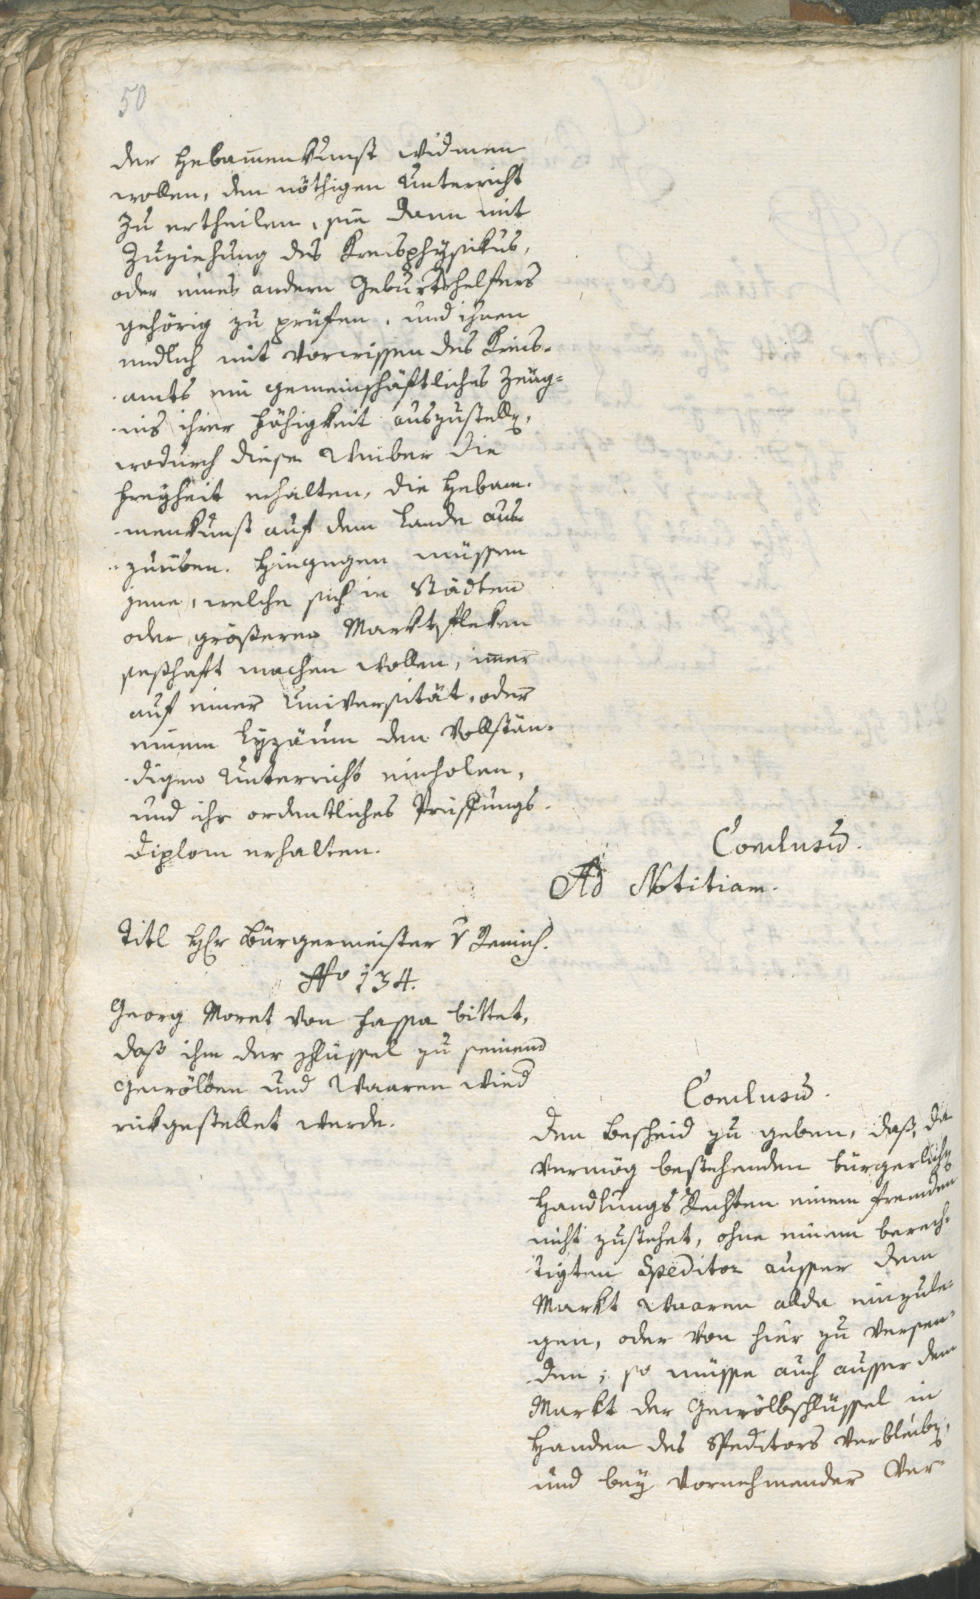 50
der Hebammenkunst widmen
wollen, den nöthigen Unterricht
zu ertheilen, sie dann mit
Zuziehung des Kreisphysikus,
oder eines andern Geburtshelfers
gehörig zu prüfen, und ihnen
endlich mit Vorwissen des Kreis-
amts ein gemeinschäftliches Zeug-
nis ihrer Fähigkeit auszustellen,
wodurch diese Weiber die
Freyheit erhalten, die Hebam-
menkunst auf dem Lande aus-
zuüben. Hingegen müssen
jene, welche sich in Städten
oder größeren Marktfleken
seßhaft machen wollen, immer
auf einer Universität, oder
einem Lyzäum den vollstän-
digen Unterricht einholen,
und ihr ordentliches Prüffungs-
Diplom erhalten.
Conclusum.
Ad Notitiam.
Titl Hr Bürgermeister v
No 134.
Georg Moret von Hassa bittet,
daß ihm der Schlüssel zu seinem
Gewölben und Waaren wird
rükgestellet werde.
Conclusum.
Den Bescheid zu geben, daß, da
vermög bestehenden bürgerlichen
Handlungs Rechten einem Fremden
nicht zustehet, ohne einem berech-
tigten Speditor ausser dem
Markt Waaren allda einzule-
gen, oder von hier zu versen-
den; so müsse auch ausser dem
Markt der Gewölbschlüssel in
Handen des Speditors verbleiben,
und bey vornehmender Ver-